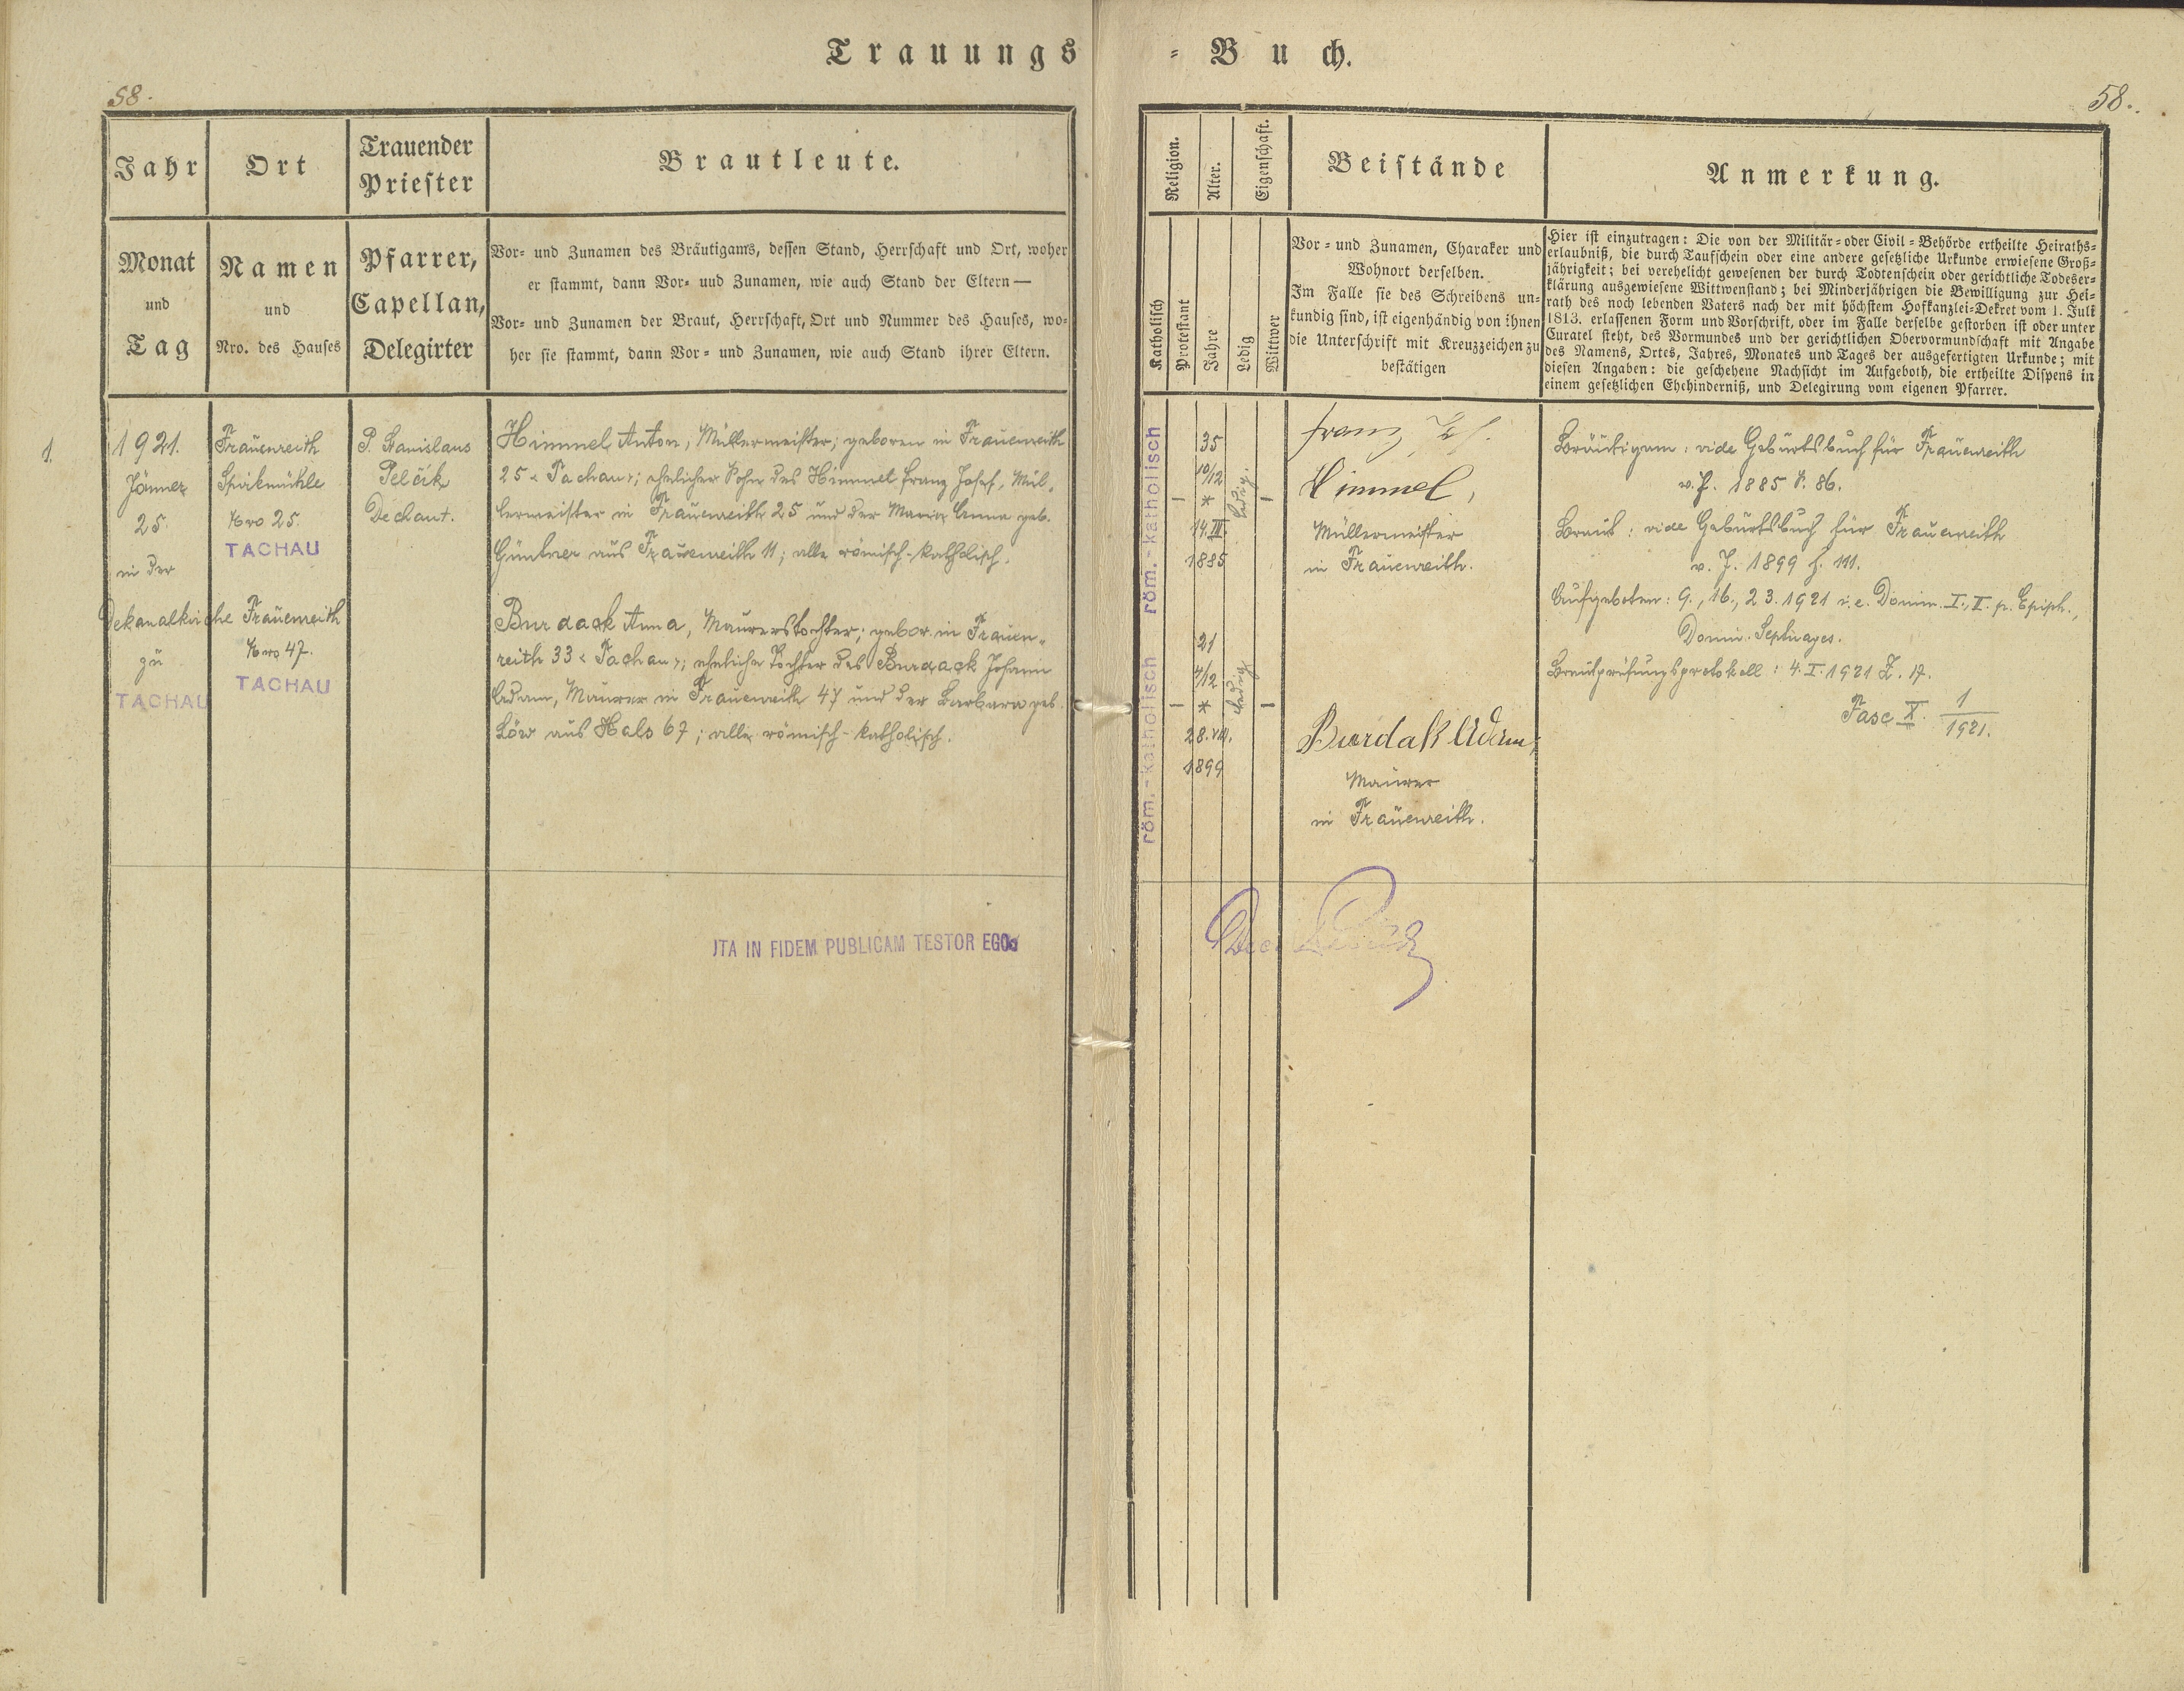 Trauungs = Buch.
58.
58.
Jahr
Ort
Trauender
Priester
Brautleute.
Monat
und
Tag
Namen
und
Nro. des Hauses
Pfarrer,
Capellan,
Delegirter
Vor- und Zunamen des Bräutigams, dessen Stand, Herrschaft und Ort, woher
er stammt, dann Vor- uud Zunamen, wie auch Stand der Eltern —
Vor- und Zunamen der Braut, Herrschaft, Ort und Nummer des Hauses, wo-
her sie stammt, dann Vor- und Zunamen, wie auch Stand ihrer Eltern.
1.
1921.
Jänner
25.
in der
Dekanalkirche
zu
TACHAU
Frauenreith
Spirkmühle
Nro 25.
TACHAU
Frauenreith
Nro 47.
TACHAU
P. Stanislaus
Pelčik
Dechant.
Himmel Anton, Müllermeister; geboren in Frauenreith
25 "Tachau"; ehelicher Sohn des Himmel Franz Josef, Mül-
lermeister in Frauenreith 25 und der Maria Anna geb.
Güntner aus Frauenreith 11; alle römisch-katholisch.
Burdack Anna, Maurerstochter; gebor. in Frauen-
reith 33 "Tachau"; eheliche Tochter des Burdack Johann
Adam, Maurer in Frauenreith 47 und der Barbara geb.
Löw aus Hals 67; alle römisch-katholisch.
ITA IN FIDEM PUBLICAM TESTOR EGO
Religion.
Alter.
Eigenschaft.
Beistände
Anmerkung.
Katholisch
Protestant
Jahre
Ledig
Wittwer
Vor- und Zunamen, Charakter und
Wohnort derselben.
Im Falle sie des Schreibens un-
kundig sind, ist eigenhändig von ihnen
die Unterschrift mit Kreuzzeichen zu
bestätigen
Hier ist einzutragen: Die von der Militär- oder Civil-Behörde ertheilte Heiraths-
erlaubniß, die durch Taufschein oder eine andere gesetzliche Urkunde erwiesene Groß-
jährigkeit; bei verehelicht gewesenen der durch Todtenschein oder gerichtliche Todeser-
klärung ausgewiesene Wittwenstand; bei Minderjährigen die Bewilligung zur Hei-
rath des noch lebenden Vaters nach der mit höchstem Hofkanzlei-Dekret vom 1. Juli
1813. erlassenen Form und Vorschrift, oder im Falle derselbe gestorben ist oder unter
Curatel steht, des Vormundes und der gerichtlichen Obervormundschaft mit Angabe
des Namens, Ortes, Jahres, Monates und Tages der ausgefertigten Urkunde; mit
diesen Angaben: die geschehene Nachsicht im Aufgeboth, die ertheilte Dispens in
einem gesetzlichen Ehehinderniß, und Delegirung vom eigenen Pfarrer.
röm.-katholisch
35
10/12
*
14.III.
1885
ledig.
Franz
Himmel,
Müllermeister
in Frauenreith.
röm.-katholisch
21
4/12
*
28.VIII.
1899
ledig
Burdak Adam,
Maurer
in Frauenreith.
Bräutigam: vide Geburtsbuch für Frauenreith
v. J. 1885 S. 86.
Braut: vide Geburtsbuch für Frauenreith
v. J. 1899 f. 111.
Aufgeboten: 9., 16., 23. 1921 i.e. Domin. I., II. p. Epiph.,
Domin. Septuages.
Brautprüfungsprotokoll: 4. I. 1921 Z. 17.
Fasc X. 1/1921.